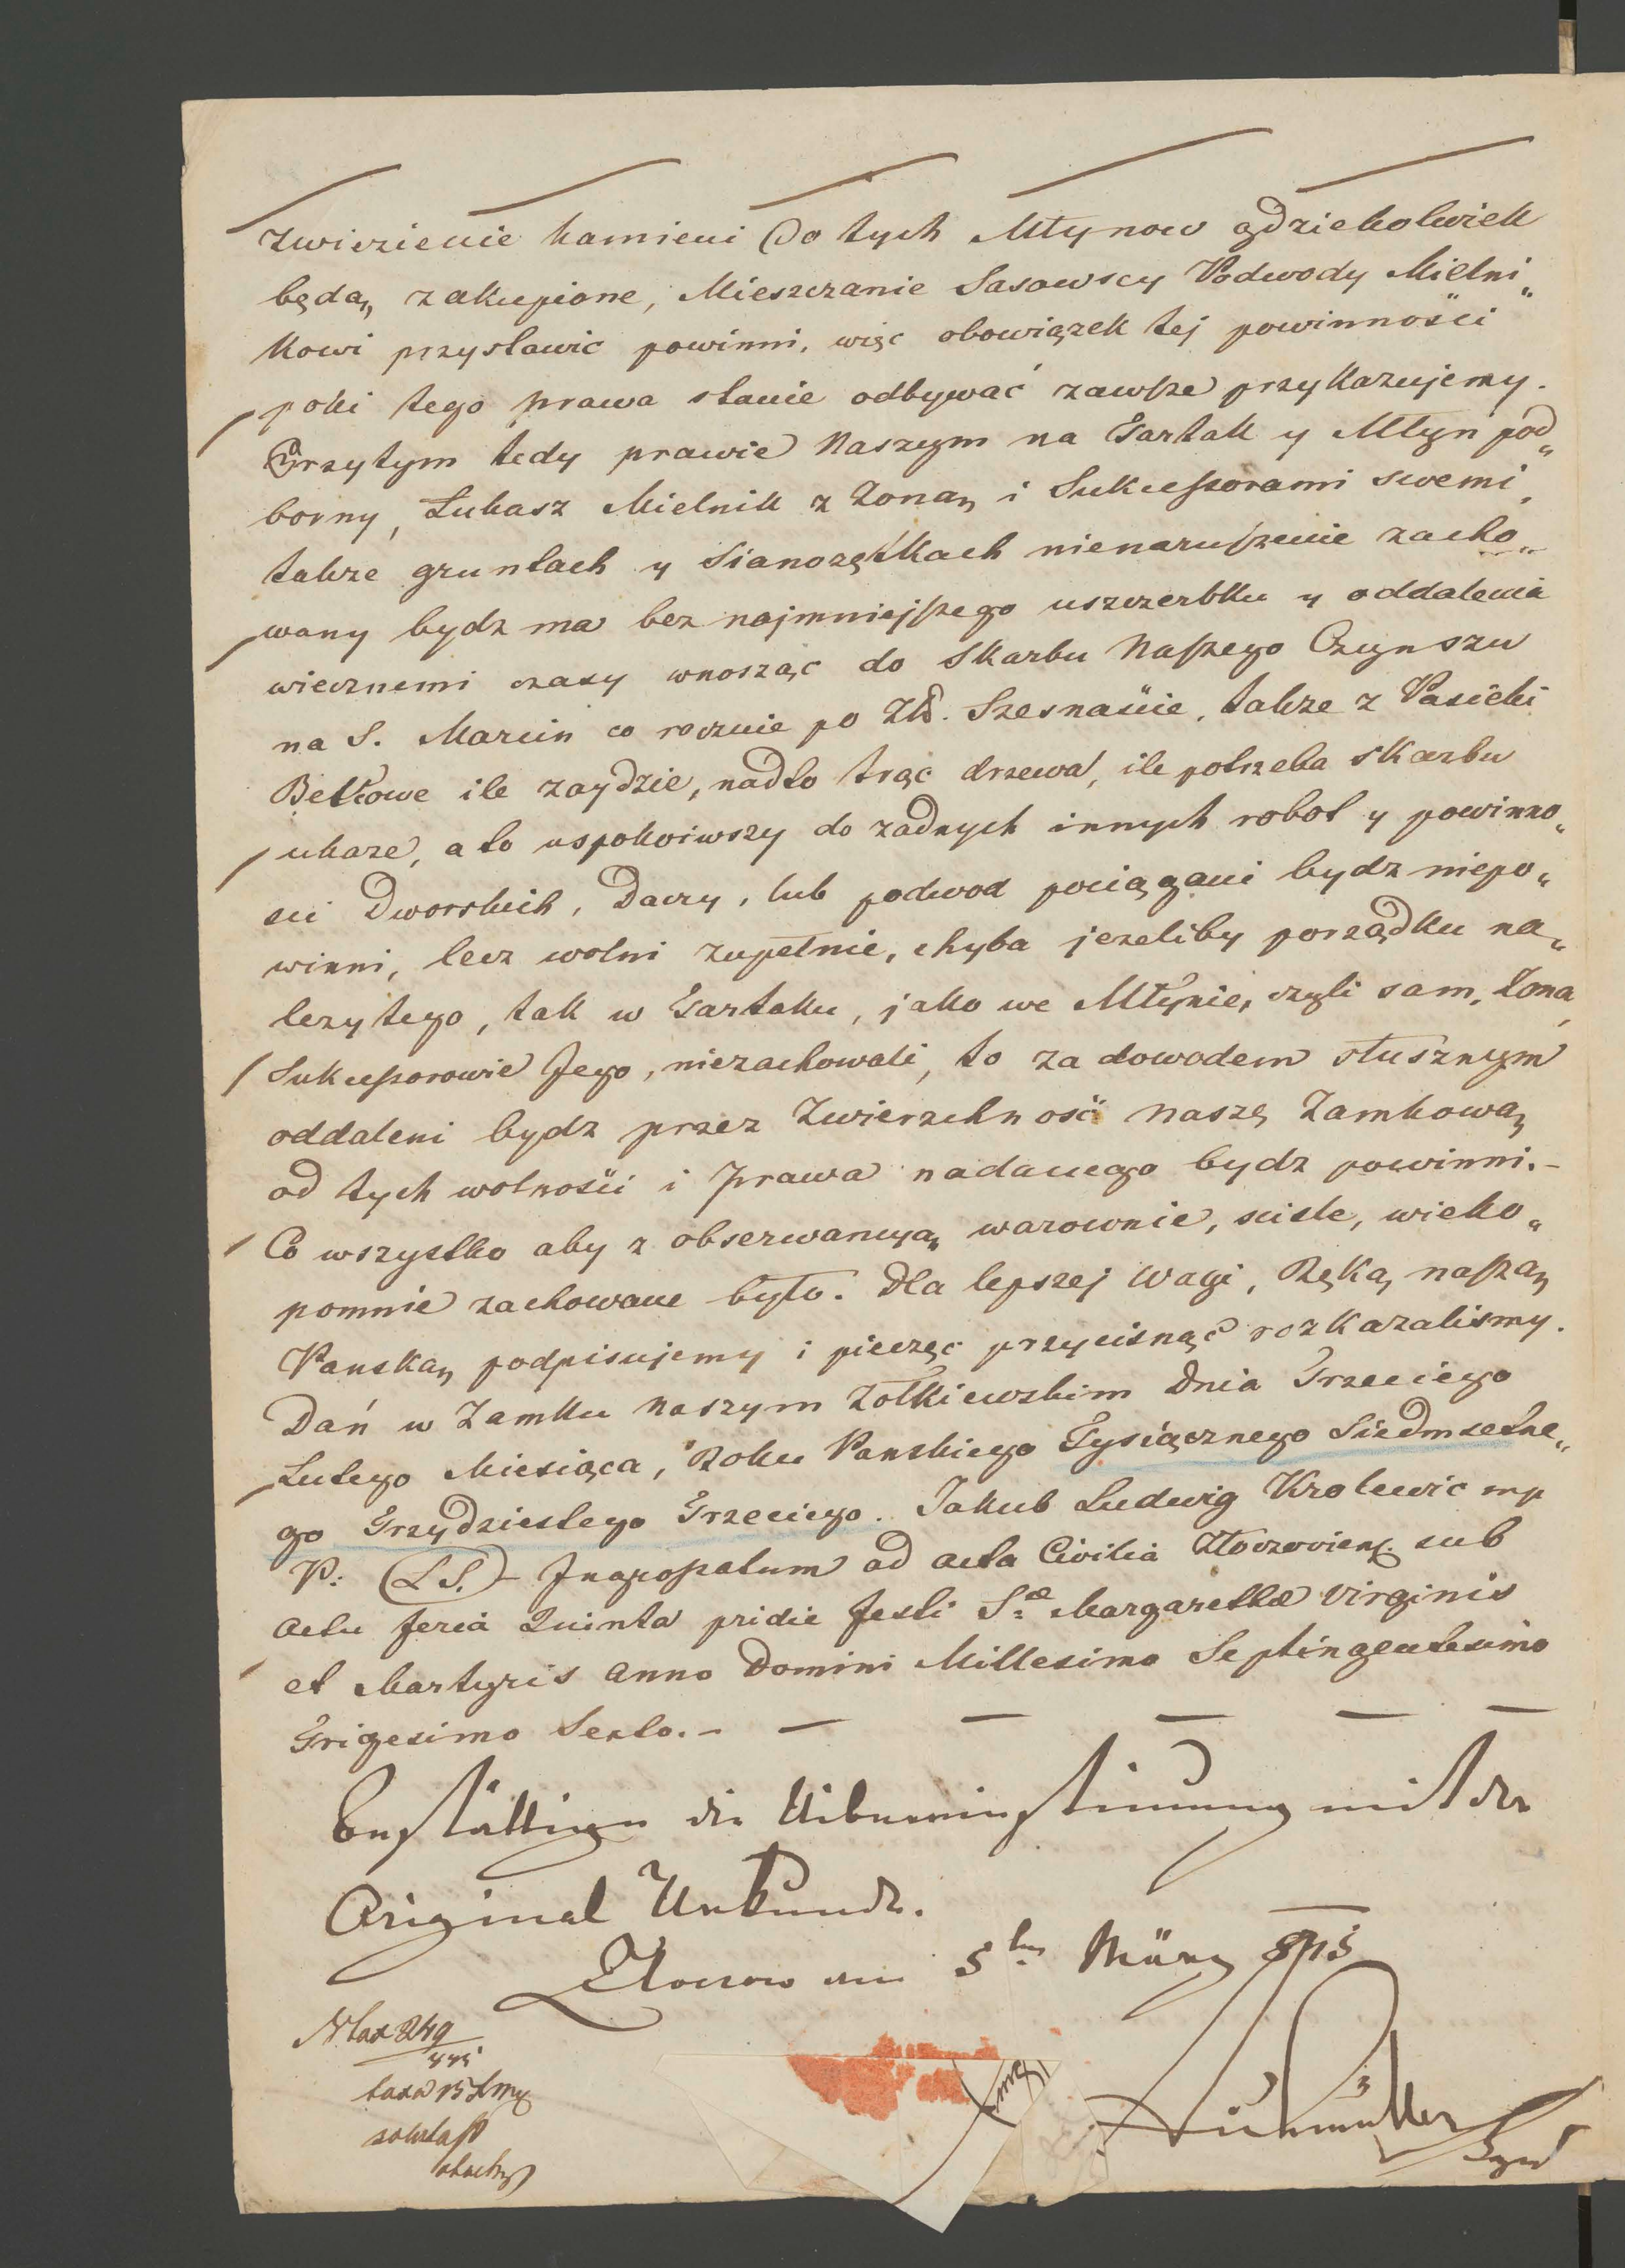 Zwiezienie kamieni do tych Młynow gdziekolwiek
będą zakupione, Mieszczanie Sasowscy Podwody Mielni„
kowi przystawić powinni, więc obowiązek tej powinnośći
poki tego prawa stanie odbywać zawsze przykazujemy.
Przytym tedy prawie Naszym na Tartak y Młyn pod„
borny, Łukasz Mielnik z Zoną i Sukcessorami swemi,
także gruntach y Sianozętkach nienaruszenie zacho„
wany bydz ma bez najmniejszego uszczerbku y oddalenia
wiecznemi czasy wnosząc do Skarbu Naszego Czynszu
na S. Marcin co rocznie po Zł. Szesnaście, także z Pasieki
Betkowe ile zaydzie, nadto trąc drzewa, ile potrzeba skarbu
ukaze, a to uspokoiwszy do zadnych innych robot y powinno„
sci Dworskich, Daczy, lub podwod pociągani bydz niepo„
winni, lecz wolni zupełnie, chyba jezeliby porządku na„
lezytego, tak w Tartaku, jako we Młynie, czyli sam, Zona,
Sukcessorowie Jego, niezachowali, to za dowodem słusznym
oddaleni bydz przez Zwierzchność naszę Zamkową
od tych wolnośći i Prawa nadanego bydz powinni.–
Co wszystko aby z obserwancyą, warownie, sciśle, wieko„
pomnie zachowane było. Dla lepszej Wagi, Ręką naszą
Panską podpisujemy i pieczęc przycisnąć rozkazalismy.
Dań w Zamku Naszym Zołkiewskim Dnia Trzeciego
Lutego Miesiąca, Roku Panskiego Tysiącznego Siedmsetne„
go Trzydziestego Trzeciego. Jakub Ludwig Krolewic mp
P: (LS.) – Ingrossatum ad acta Civilia Złoczoviens. sub
Actu feria Quinta pridie festi S:æ Margarethæ Virginis
et Martyris Anno Domini Millesimo Septingentesimo
Trigesimo Sexto.– – – – – –
Bestättigen die Uibereinstimmung mit der
Original Urkunde.
Zloczow am 5ten März 815
Ntax 249
taxa 15 Xmg